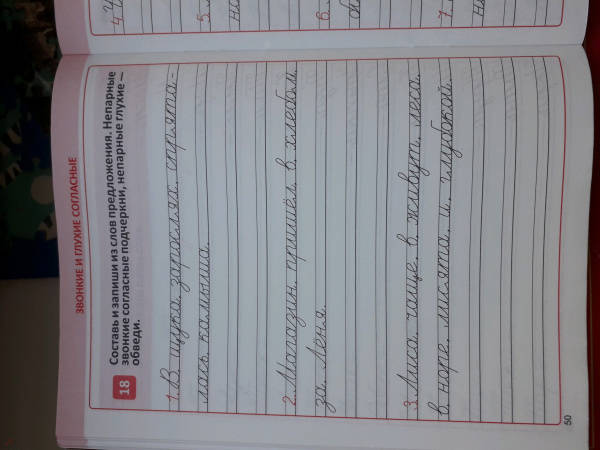 ЗВОНКИЕ И ГЛУХИЕ СОГЛАСНЫЕ
18
Составь и запиши из слов предложения. Непарные
звонкие согласные подчеркни, непарные глухие —
обведи.
1. В, щука, зарослях, спрята-
лась, камыша.
2. Магазин, пришёл, в, хлебом,
за, Лёня.
3. Лиса, чаще, в, живут, леса,
в, норе, лисята, и, глубокой.
50
4.
5.
6.
7.